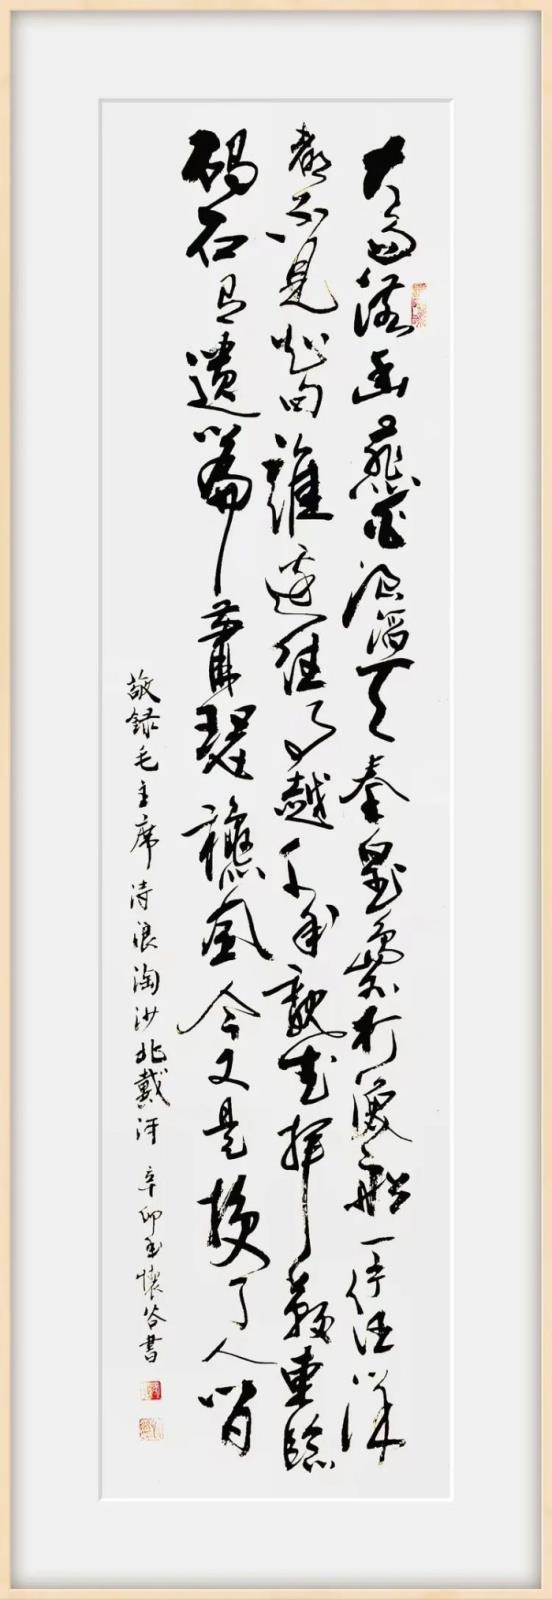 大雨落幽燕白浪滔天秦皇島外打漁船一片汪洋
都不見知向誰邊往事越千年魏武揮鞭東臨
碣石有遺篇蕭瑟秋風今又是換了人間
敬録毛主席詩浪淘沙北戴河 辛卯懷谷書